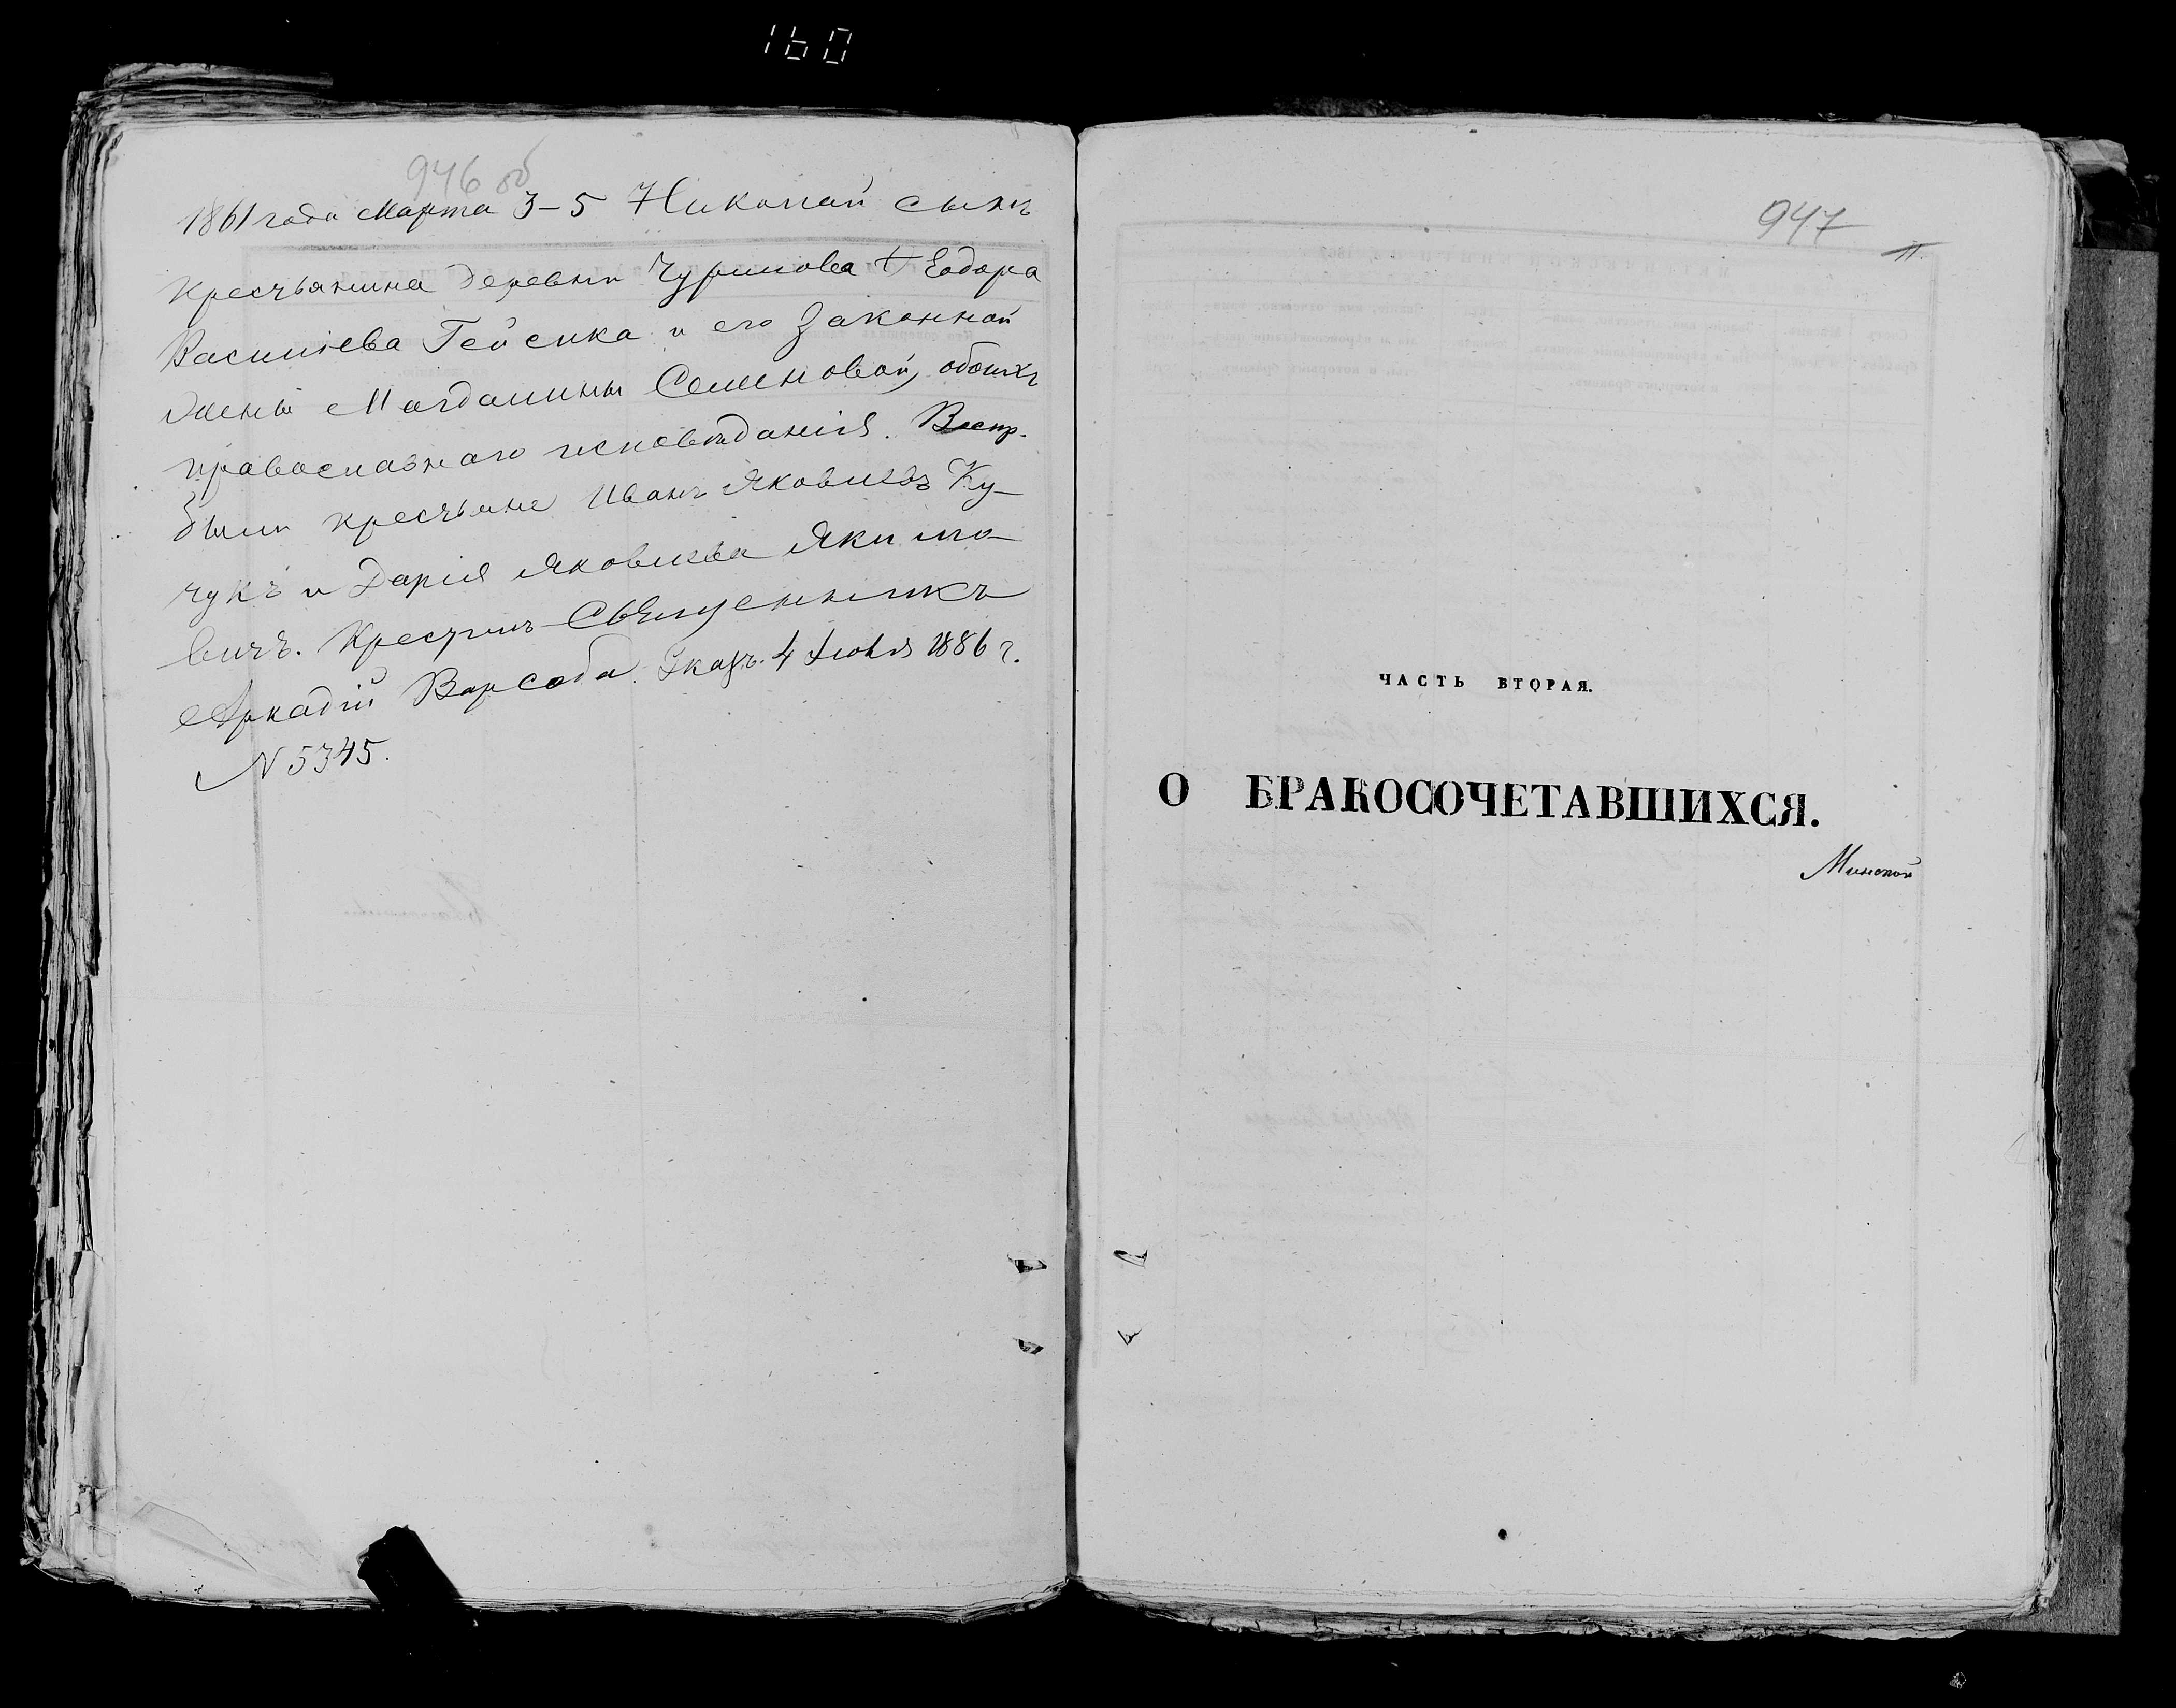 160
946 об
1861 года Марта 3–5 Николай сынъ
крестьянина деревни Чурилова Ѳеодора
Васильева Гейсика и его законной
жены Магдалины Семеновой, обоихъ
православнаго исповѣданія. Воспр.
были крестьяне Иванъ Яковлевъ Ку–
чукъ и Дарія Яковлева Якимо–
вичъ. Крестилъ Священникъ
Аркадій Варсоба. Указъ. 4 Іюля 1886 г.
N 5345.
947
ЧАСТЬ ВТОРАЯ.
О БРАКОСОЧЕТАВШИХСЯ.
Минской